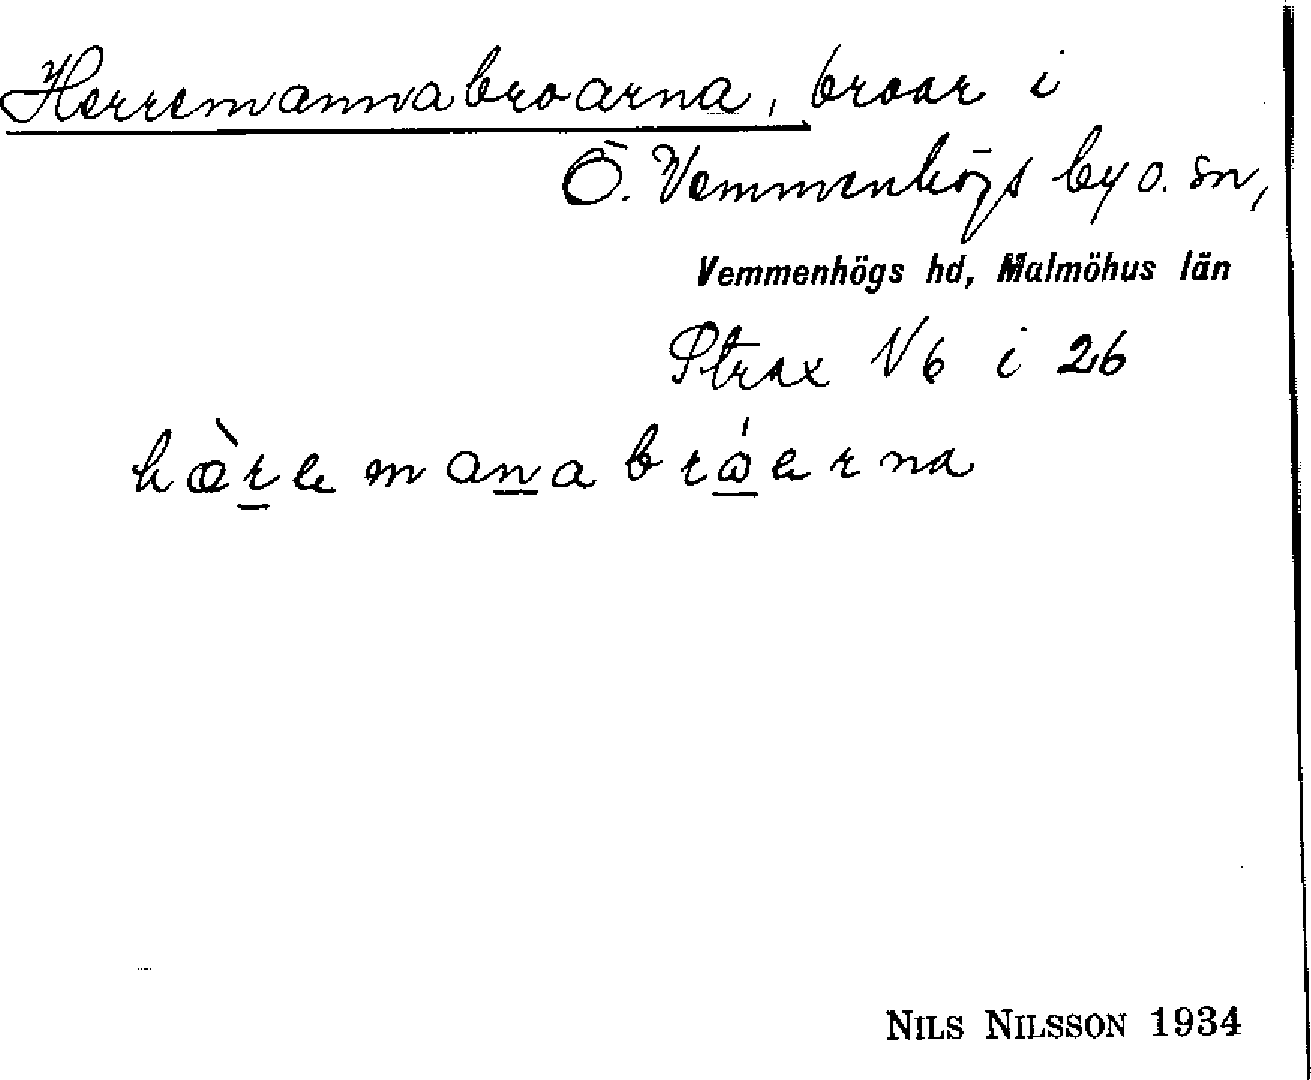 Herremannabroarna, broar i
Ö. Vemmenhögs by o. sn,
Vemmenhögs hd, Malmöhus län
Strax V 6 i 26
hæ̀re mana bróerna
NILS NILSSON 1934